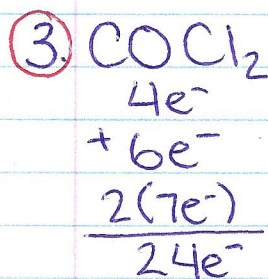 3. COCl₂
4e⁻
+ 6e⁻
2(7e⁻)
24e⁻